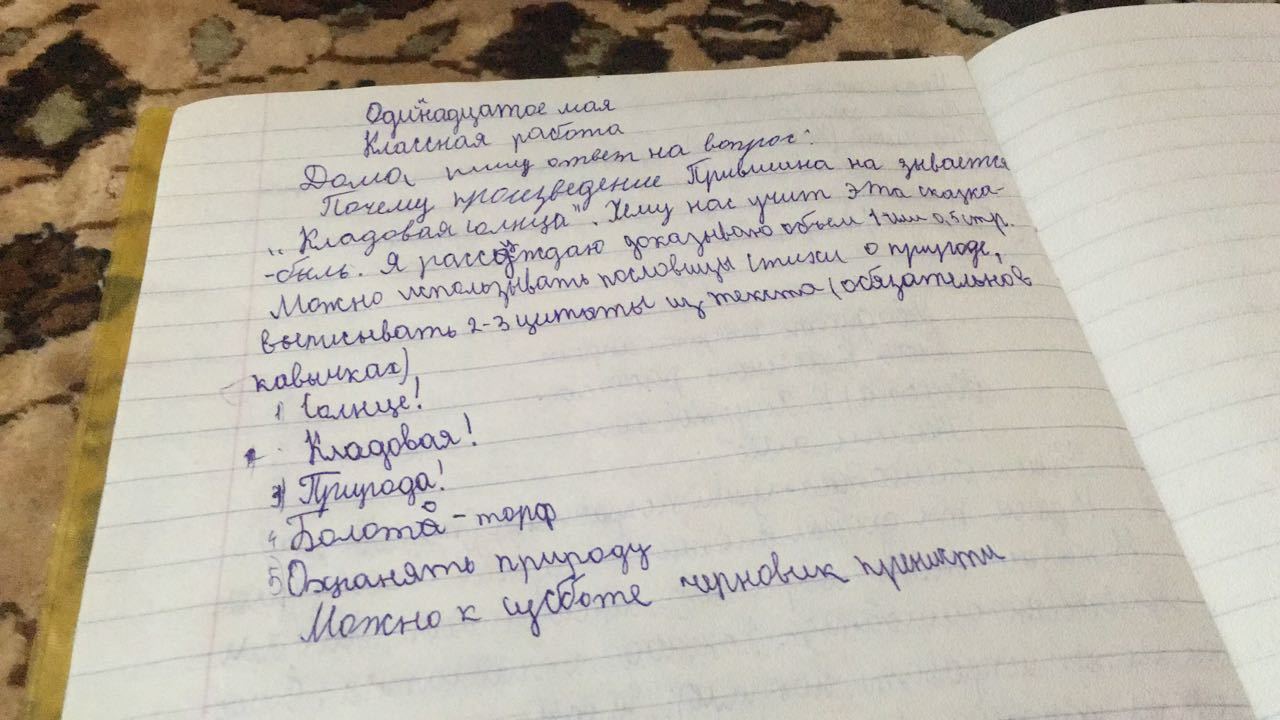 Одиннадцатое мая
Классная работа
Дома, пишу ответ на вопрос:
Почему произведение Пришвина на зывается
„Кладовая солнца". Чему нас учит эта сказка-
-быль. Я рассуждаю доказываю объем 1 или 0,5 стр.
Можно использывать пословицы стихи о природе,
выписывать 2-3 цитаты из текста (обязательно в
кавычках)
1 Солнце!
Кладовая!
3) Природа!
4 Болото - торф
5 Охранять природу
Можно к субботе черновик принести